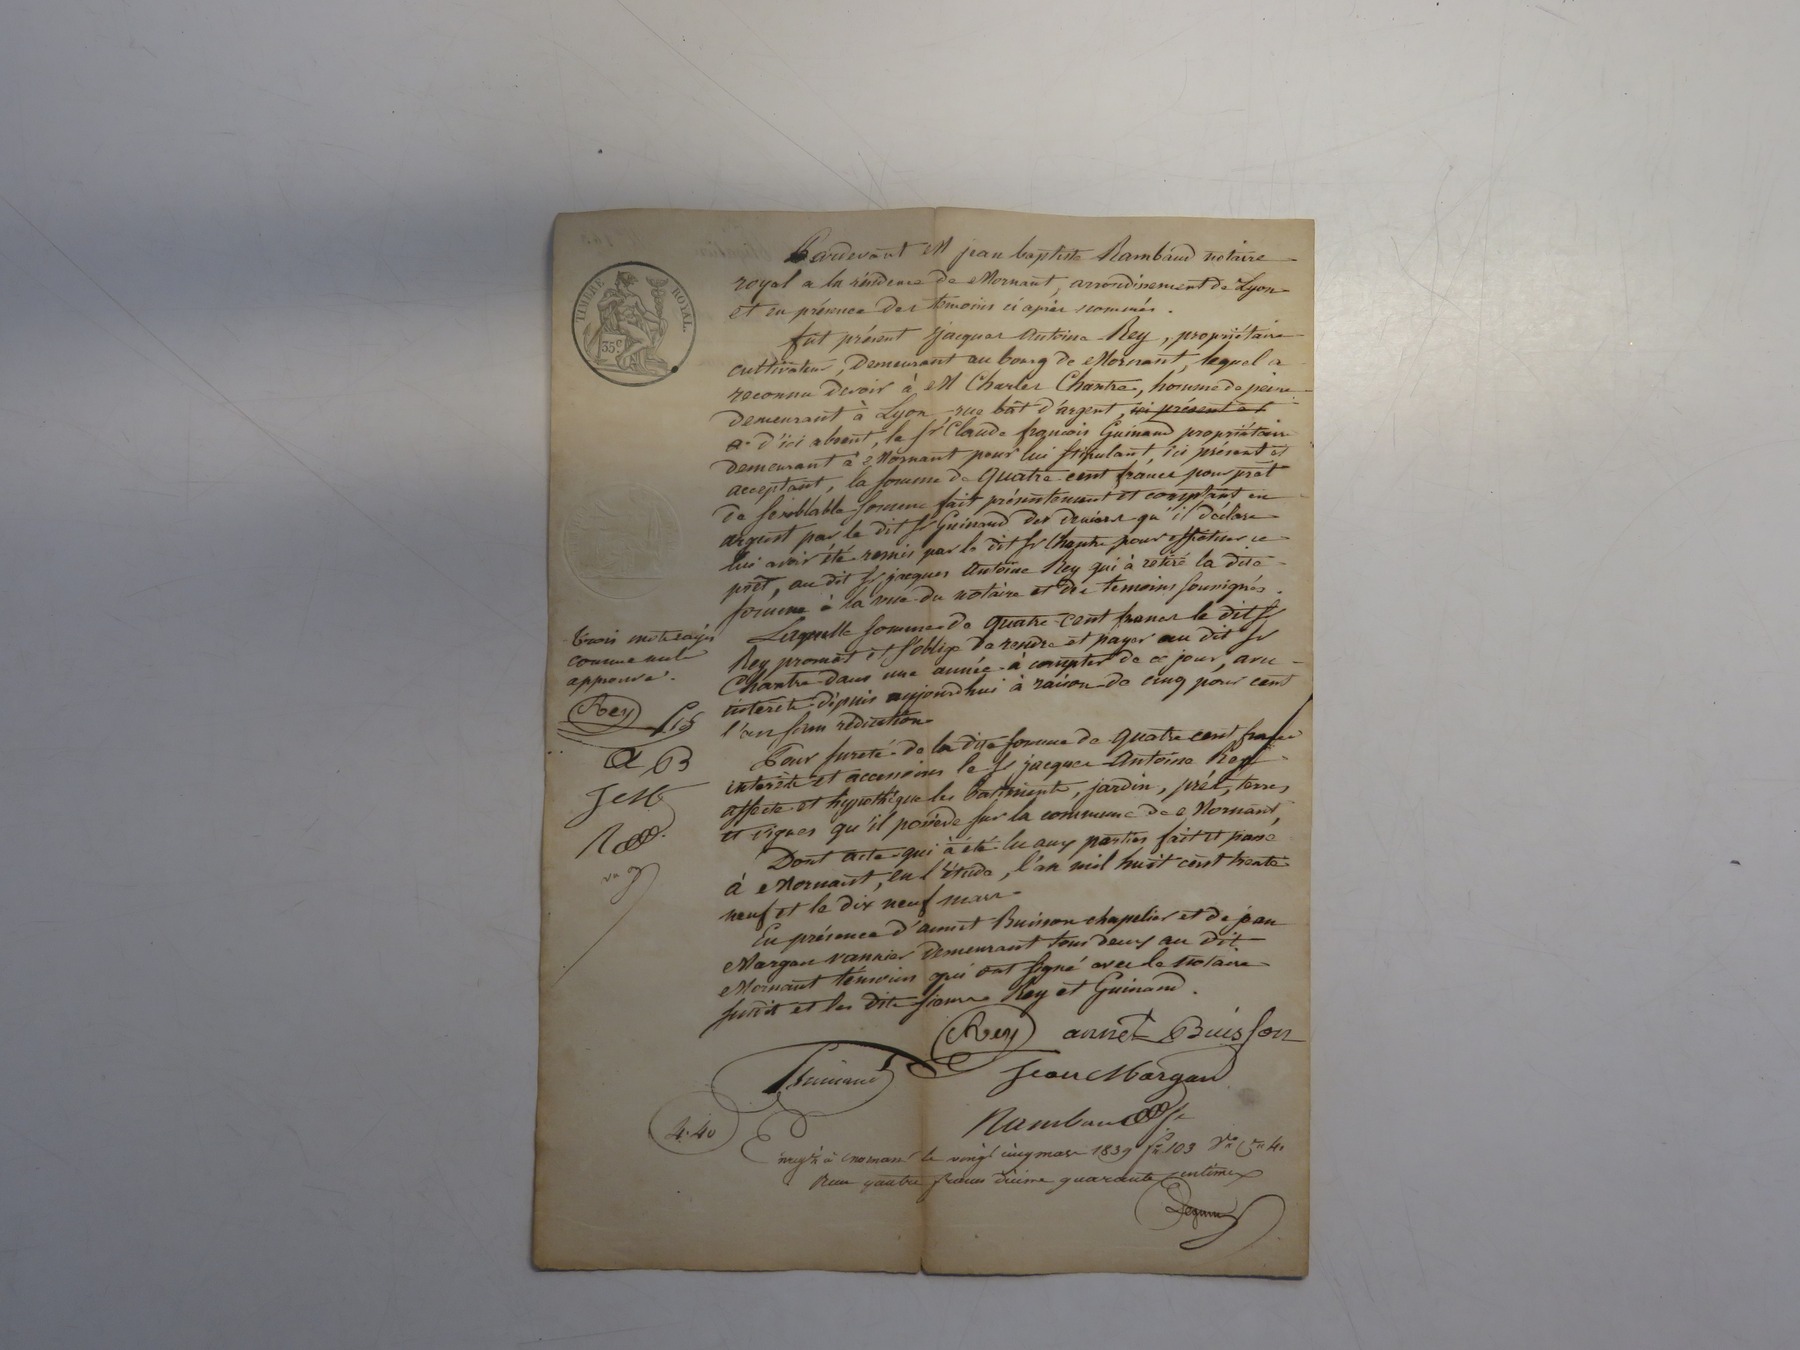 TIMBRE ROYAL.
35 c.
Pardevant M jean baptiste Rambaud notaire
royal a la résidence de Mornant, arrondissement de Lyon
et en présence des temoins ci après nommés.
fut présent jacques Antoine Rey, propriétaire
cultivateur, demeurant au bourg de Mornant, lequel a
reconnu devoir à M Charles Chantre, homme de peine
demeurant à Lyon rue bât d'argent, ici présent et
d'ici absent, le sr Claude françois Guinand propriétaire
demeurant à Mornant pour lui stipulant, ici présent et
acceptant, la somme de quatre cent francs pour prêt
de semblable somme fait présentement et comptant en
argent par le dit sr Guinand des deniers qu'il déclare
lui avoir été remis par le dit sr Chantre pour effectuer ce
prêt, au dit sr jacques Antoine Rey qui à retiré la dite
somme à la vue du notaire et des temoins soussignés.
Laquelle somme de quatre cent francs le dit sr
Rey promet et s'oblige de rendre et payer au dit sr
Chantre dans une année à compter de ce jour, avec
intérêts depuis aujourdhui à raison de cinq pour cent
l'an sans rédiction
Pour sureté de la dite somme de quatre cent francs
intérêts et accessoires le sr jacques Antoine Rey
affecte et hypothèque les batiments, jardin, prés, terres
et vignes qu'il possède sur la commune de Mornant,
Dont acte qui à été lu aux parties fait et passé
à Mornant, en l'étude, l'an mil huit cent trente
neuf et le dix neuf mars
En présence d'annet Buisson chapelier et de jean
Margan vannier demeurant tous deux au dit
Mornant témoins qui ont signé avec le notaire
susdit et les dits sieurs Rey et Guinand.
trois mots rayés
comme nuls
approuvé.
Rey
A B
J M
Rey annet Buisson
Guinand Jean Margan
Rambaud
4.40
Enregtré à mornant le vingt cinq mars 1839 f° 103 V° C. 4.
Reçu quatre francs décime quarante centimes